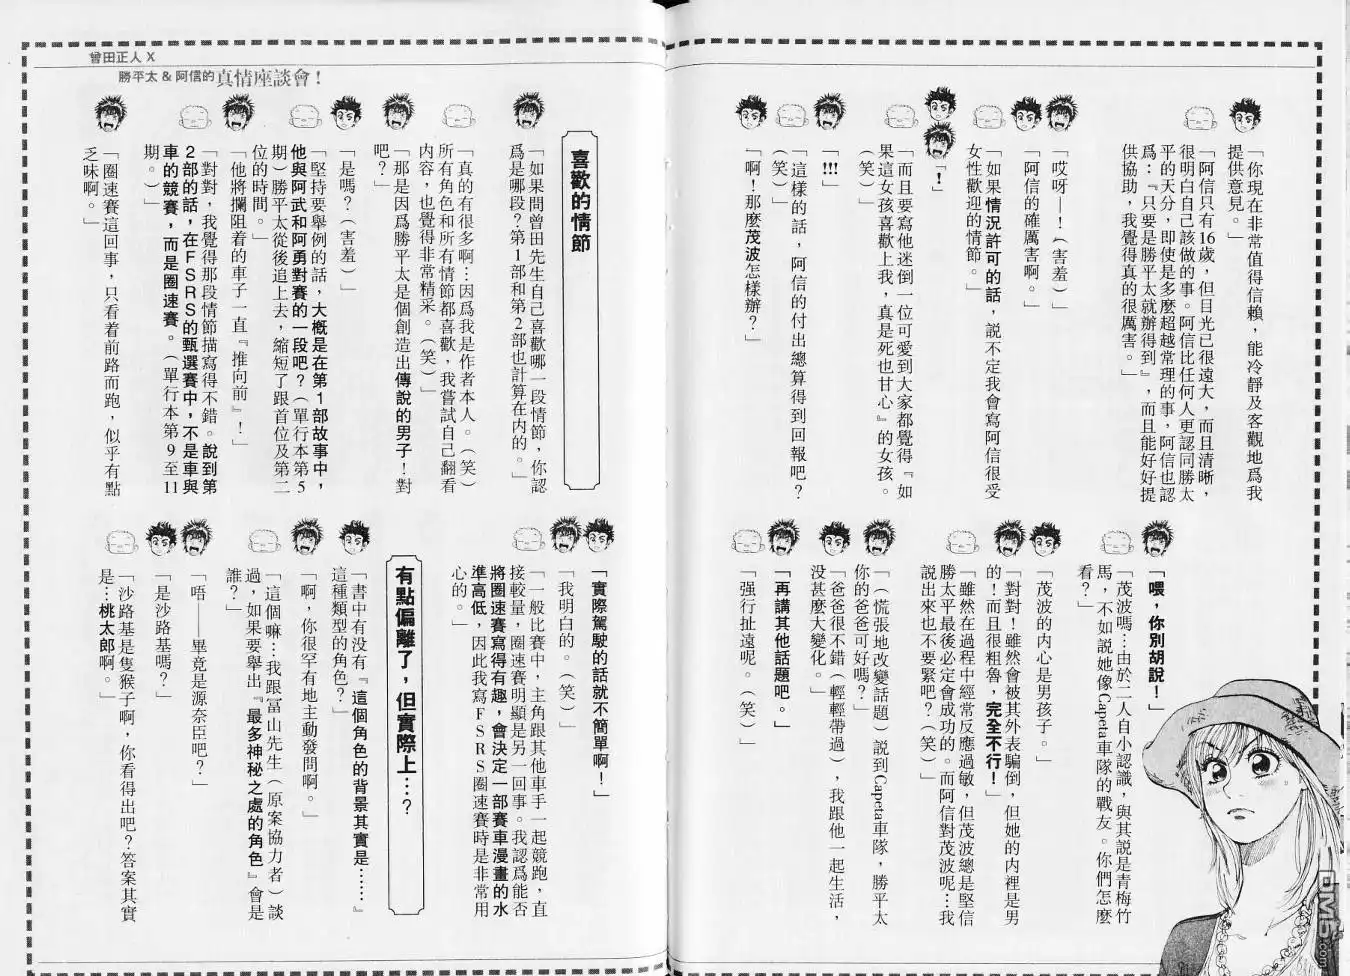 曾田正人 X
勝平太 & 阿信的真情座談會！
「你現在非常值得信賴，能冷靜及客觀地爲我
提供意見。」
「阿信只有16歲，但目光已很遠大，而且清晰，
很明白自己該做的事。阿信比任何人更認同勝太
平的天分，即使是多麼超越常理的事，阿信也認
爲：『只要是勝平太就辦得到』，而且能好好提
供協助，我覺得真的很厲害。」
「哎呀—！（害羞）」
「阿信的確厲害啊。」
「如果情況許可的話，説不定我會寫阿信很受
女性歡迎的情節。」
「！」
「而且要寫他迷倒一位可愛到大家都覺得『如
果這女孩喜歡上我，真是死也甘心』的女孩。
（笑）」
「!!!」
「這樣的話，阿信的付出總算得到回報吧？
（笑）」
「啊！那麼茂波怎樣辦？」
「喂，你別胡說！」
「茂波嗎…由於二人自小認識，與其説是青梅竹
馬，不如説她像Capeta車隊的戰友。你們怎麼
看？」
「茂波的内心是男孩子。」
「對對！雖然會被其外表騙倒，但她的内裡是男
的！而且很粗魯，完全不行！」
「雖然在過程中經常反應過敏，但茂波總是堅信
勝太平最後必定會成功的。而阿信對茂波呢…我
説出來也不要緊吧？（笑）」
「（慌張地改變話題）説到Capeta車隊，勝平太
你的爸爸可好嗎？」
「爸爸很不錯（輕輕帶過），我跟他一起生活，
没甚麼大變化。」
「再講其他話題吧。」
「强行扯遠呢。（笑）」
喜歡的情節
「如果問曾田先生自己喜歡哪一段情節，你認
爲是哪段？第1部和第2部也計算在内的。」
「真的有很多啊…因爲我是作者本人。（笑）
所有角色和所有情節都喜歡，我嘗試自己翻看
内容，也覺得非常精采。（笑）」
「那是因爲勝平太是個創造出傳說的男子！對
吧？」
「是嗎？（害羞）」
「堅持要舉例的話，大概是在第1部故事中，
他與阿武和阿勇對賽的一段吧？（單行本第5
期）勝平太從後追上去，縮短了跟首位及第二
位的時間。」
「他將攔阻着的車子一直『推向前』！」
「對對，我覺得那段情節描寫得不錯。說到第
2部的話，在FSRS的甄選賽中，不是車與
車的競賽，而是圈速賽。（單行本第9至11
期。）」
「圈速賽這回事，只看着前路而跑，似乎有點
乏味啊。」
「實際駕駛的話就不簡單啊！」
「我明白的。（笑）」
「一般比賽中，主角跟其他車手一起競跑，直
接較量，圈速賽明顯是另一回事。我認爲能否
將圈速賽寫得有趣，會決定一部賽車漫畫的水
準高低，因此我寫FSRS圈速賽時是非常用
心的。」
有點偏離了，但實際上…？
「書中有没有『這個角色的背景其實是……』
這種類型的角色？」
「啊，你很罕有地主動發問啊。」
「這個嘛…我跟冨山先生（原案協力者）談
過，如果要舉出『最多神秘之處的角色』會是
誰？」
「唔——畢竟是源奈臣吧？」
「是沙路基嗎？」
「沙路基是隻猴子啊，你看得出吧？答案其實
是…桃太郎啊。」